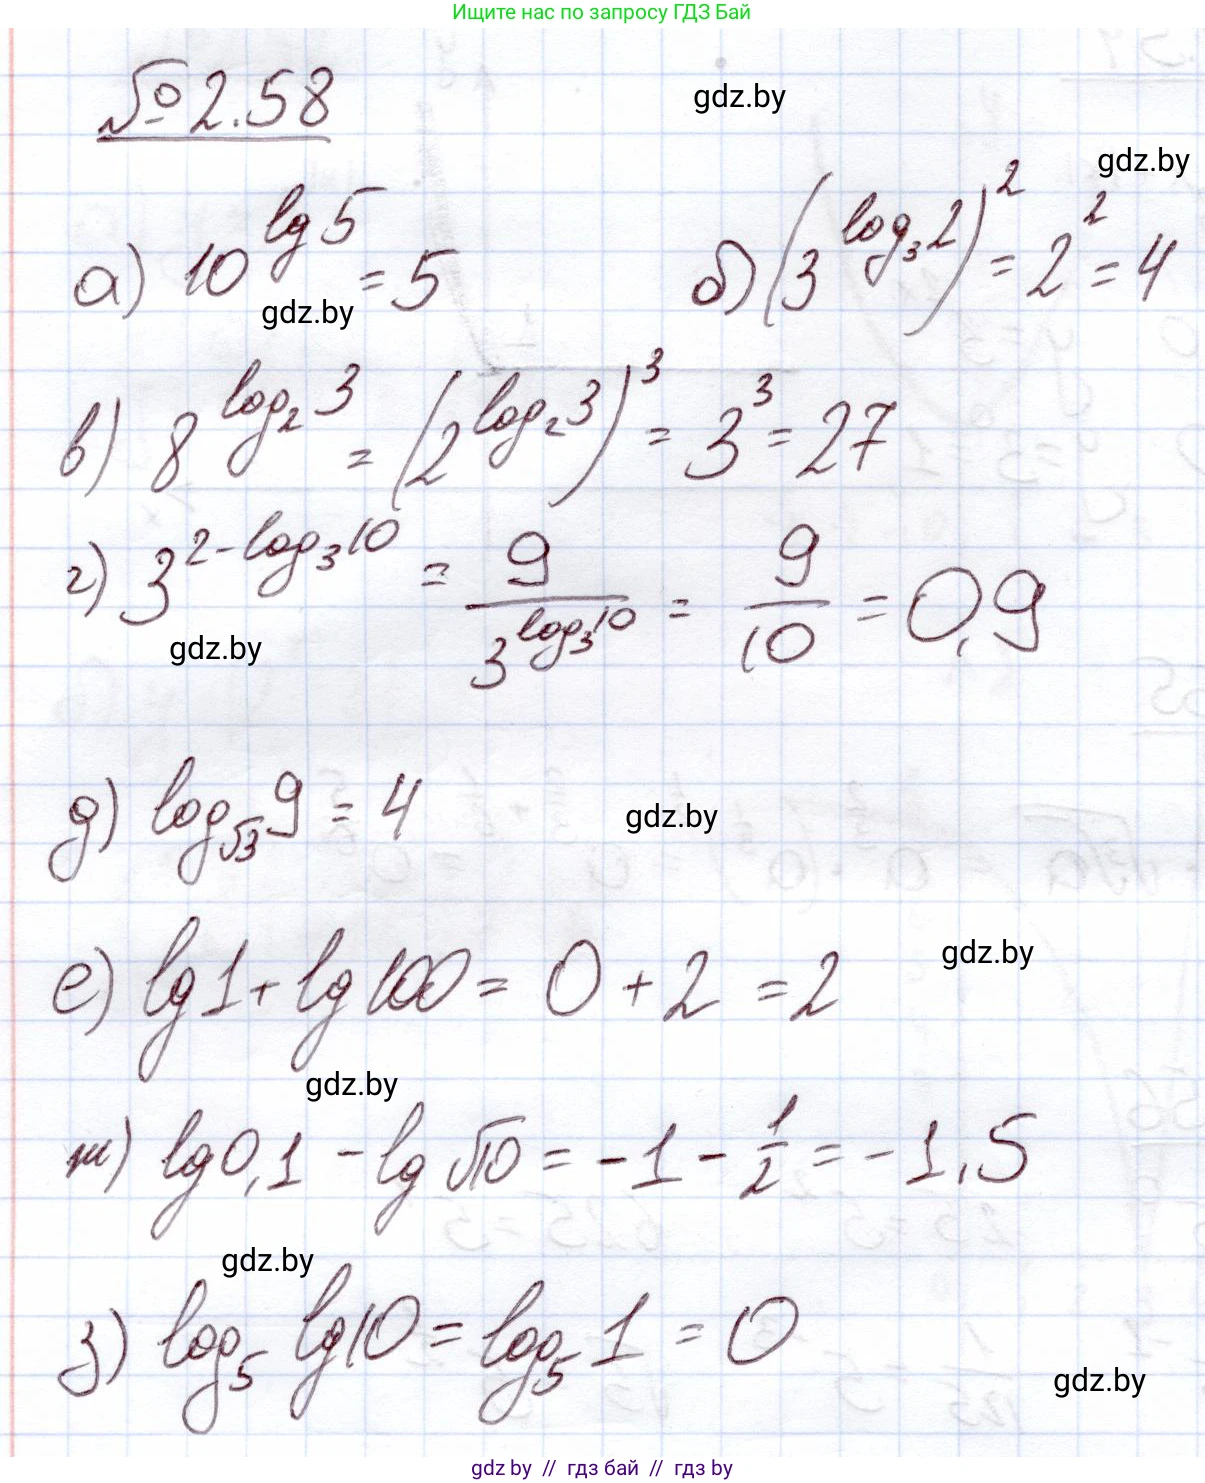 Ищите нас по запросу ГДЗ Бай
№ 2.58
gdz.by
gdz.by
а) 10^{lg 5} = 5
б) (3^{log_3 2})^2 = 2^2 = 4
gdz.by
в) 8^{log_2 3} = (2^{log_2 3})^3 = 3^3 = 27
г) 3^{2-log_3 10} = 9/3^{log_3 10} = 9/10 = 0,9
gdz.by
д) log_{√3} 9 = 4
gdz.by
е) lg 1 + lg 100 = 0 + 2 = 2
gdz.by
gdz.by
ж) lg 0,1 - lg √10 = -1 - 1/2 = -1,5
gdz.by
з) log_5 lg 10 = log_5 1 = 0
gdz.by
gdz.by // гдз бай // гдз by